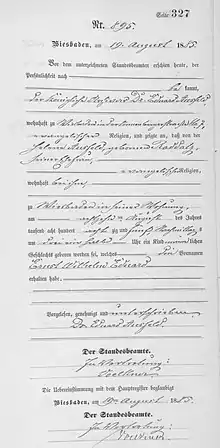 Seite 327
Nr. 895.
Wiesbaden, am 19. August 1885
Vor dem unterzeichneten Standesbeamten erschien heute, der
Persönlichkeit nach
be kannt,
der Königliche Professor Dr. Eduard Ausfeld
wohnhaft zu Wiesbaden
evangelischer Religion, und zeigte an, daß von der
Helene Ausfeld, geborene
seiner Ehefrau,
evangelischer Religion,
wohnhaft bei ihm,
zu Wiesbaden in seiner Wohnung,
am August des Jahres
tausend acht hundert achtzig und fünf Nachmittags
um drei ein halb Uhr ein Kind männlichen
Geschlechts geboren worden sei, welches die Vornamen
Ernst Wilhelm Eduard
erhalten habe.
Vorgelesen, genehmigt und unterschrieben
Dr. Eduard Ausfeld.
Der Standesbeamte.
In Vertretung:
Die Uebereinstimmung mit dem Hauptregister beglaubigt
Wiesbaden, am 19. August 1885
Der Standesbeamte.
In Vertretung: